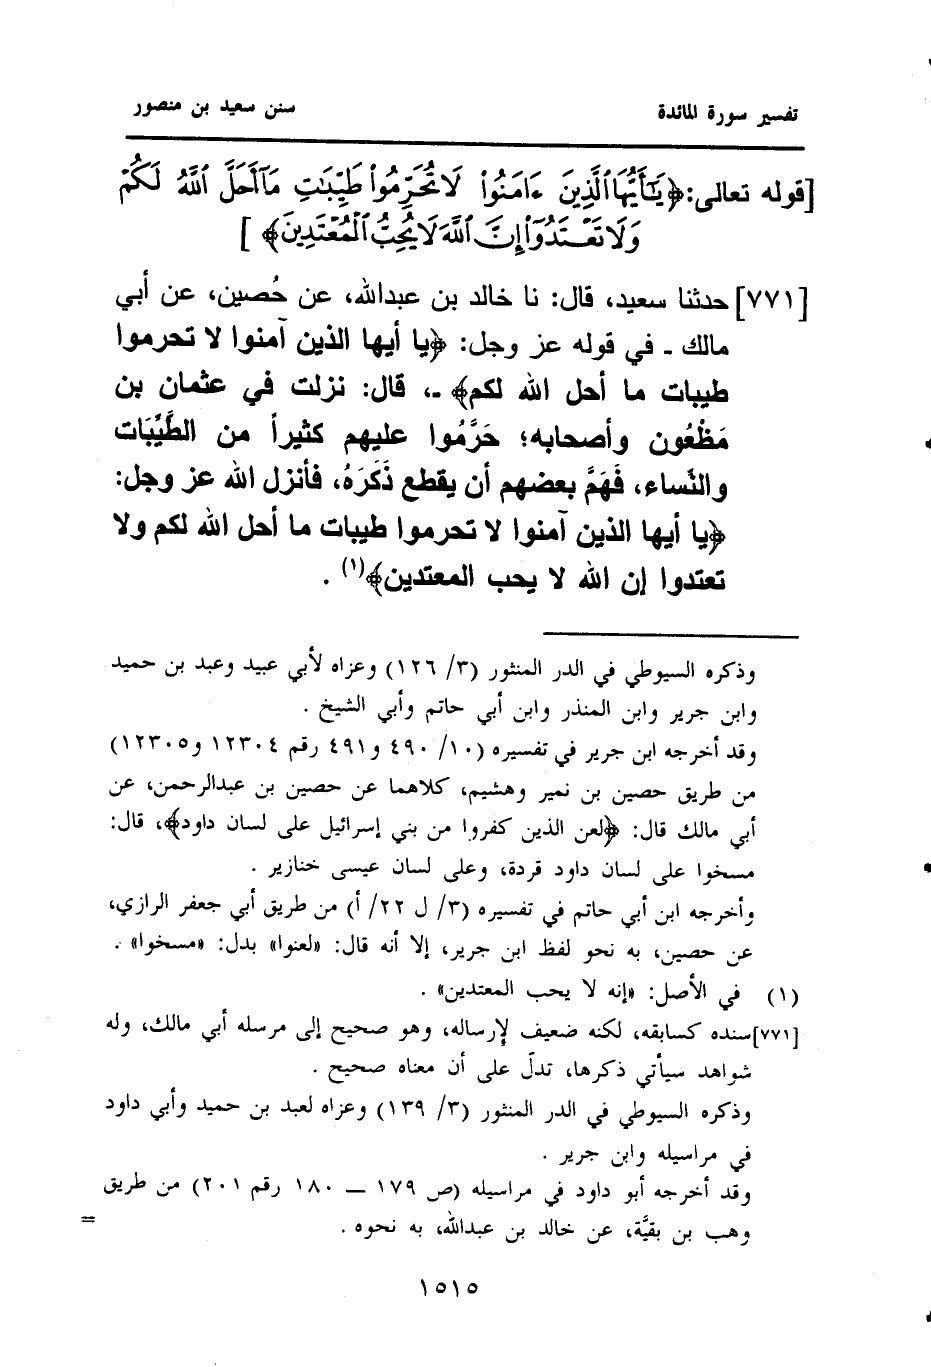 تفسير سورة المائدة
سنن سعيد بن منصور
[قوله تعالى: ﴿يَٰٓأَيُّهَا الَّذِينَ ءَامَنُوا۟ لَا تُحَرِّمُوا۟ طَيِّبَٰتِ مَآ أَحَلَّ ٱللَّهُ لَكُمْ
وَلَا تَعْتَدُوٓا۟ إِنَّ ٱللَّهَ لَا يُحِبُّ ٱلْمُعْتَدِينَ﴾ ]
[٧٧١] حدثنا سعيد، قال: نا خالد بن عبدالله، عن حُصين، عن أبي
مالك ـ في قوله عز وجل: ﴿يا أيها الذين آمنوا لا تحرموا
طيبات ما أحل الله لكم﴾ ـ، قال: نزلت في عثمان بن
مَظْعُون وأصحابه؛ حَرَّمُوا عليهم كثيراً من الطَّيِّبَات
والنِّساء، فَهَمَّ بعضهم أن يقطع ذَكَرَهُ، فأنزل الله عز وجل:
﴿يا أيها الذين آمنوا لا تحرموا طيبات ما أحل الله لكم ولا
تعتدوا إن الله لا يحب المعتدين﴾(١) .
وذكره السيوطي في الدر المنثور (٣/ ١٢٦) وعزاه لأبي عبيد وعبد بن حميد
وابن جرير وابن المنذر وابن أبي حاتم وأبي الشيخ .
وقد أخرجه ابن جرير في تفسيره (١٠/ ٤٩٠ و٤٩١ رقم ١٢٣٠٤ و١٢٣٠٥)
من طريق حصين بن نمير وهشيم، كلاهما عن حصين بن عبدالرحمن، عن
أبي مالك قال: ﴿لعن الذين كفروا من بني إسرائيل على لسان داود﴾، قال:
مسخوا على لسان داود قردة، وعلى لسان عيسى خنازير .
وأخرجه ابن أبي حاتم في تفسيره (٣/ ل ٢٢/ أ) من طريق أبي جعفر الرازي،
عن حصين، به نحو لفظ ابن جرير، إلا أنه قال: «لعنوا» بدل: «مسخوا» .
(١) في الأصل: «إنه لا يحب المعتدين» .
[٧٧١] سنده كسابقه، لكنه ضعيف لإرساله، وهو صحيح إلى مرسله أبي مالك، وله
شواهد سيأتي ذكرها، تدلّ على أن معناه صحيح .
وذكره السيوطي في الدر المنثور (٣/ ١٣٩) وعزاه لعبد بن حميد وأبي داود
في مراسيله وابن جرير .
وقد أخرجه أبو داود في مراسيله (ص ١٧٩ — ١٨٠ رقم ٢٠١) من طريق
وهب بن بقيَّة، عن خالد بن عبدالله، به نحوه .
=
١٥١٥